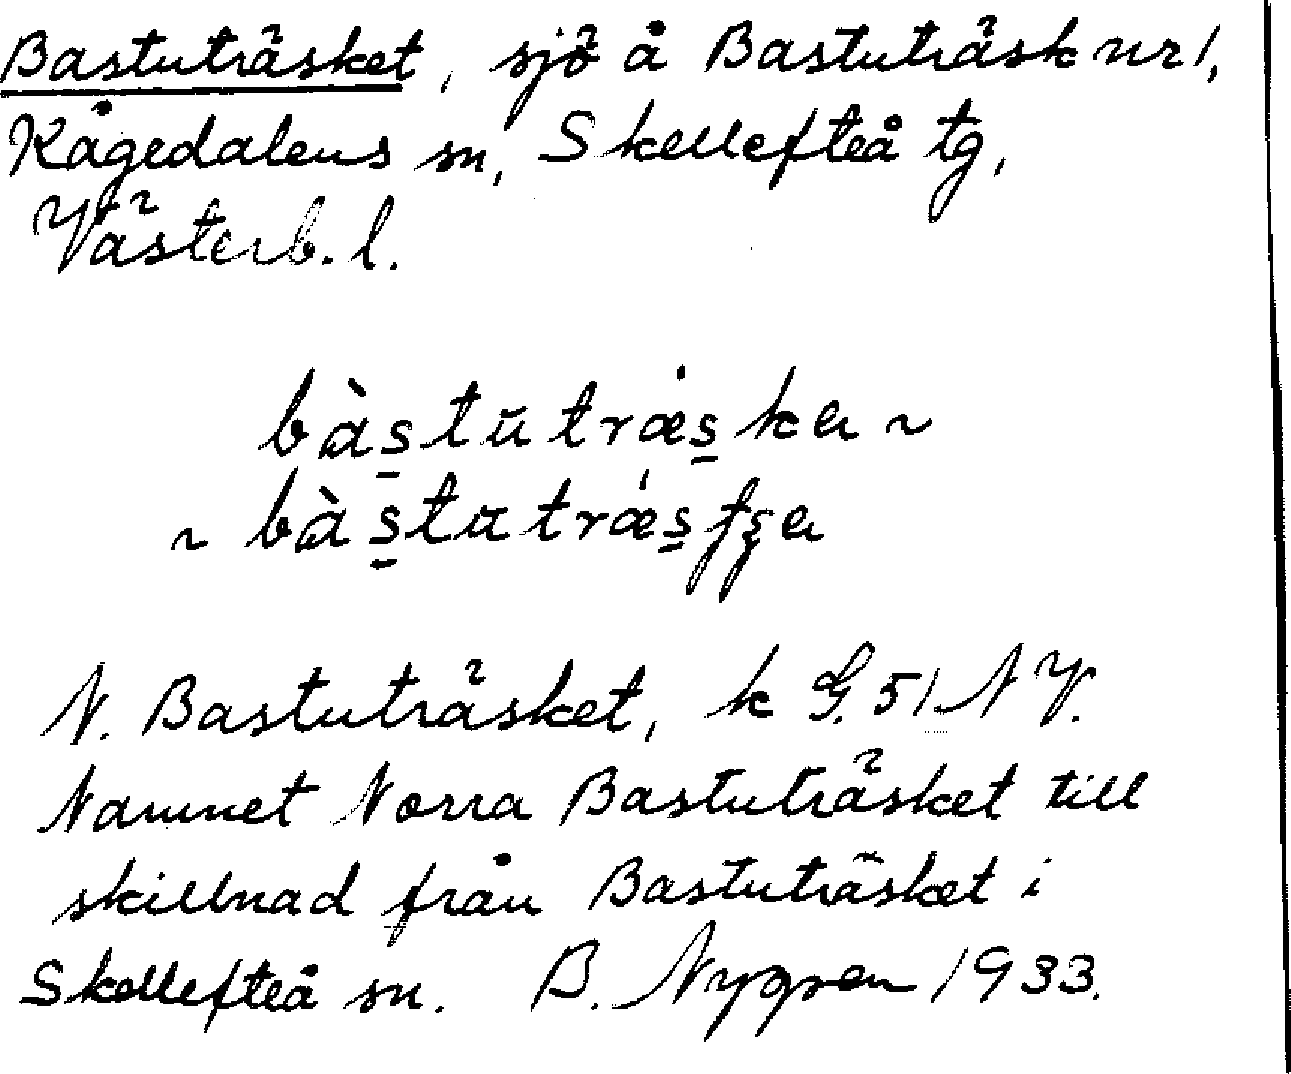 Bastuträsket, sjö å Bastuträsk nr 1,
Kågedalens sn, Skellefteå tg,
Västerb. l.
bàs̱tŭtræ̍s̱ka ~
~ bàs̱tutræ̍s̱
N. Bastuträsket, k G. 51 NV.
Namnet Norra Bastuträsket till
skillnad från Bastuträsket i
Skellefteå sn. B. Nygren 1933.